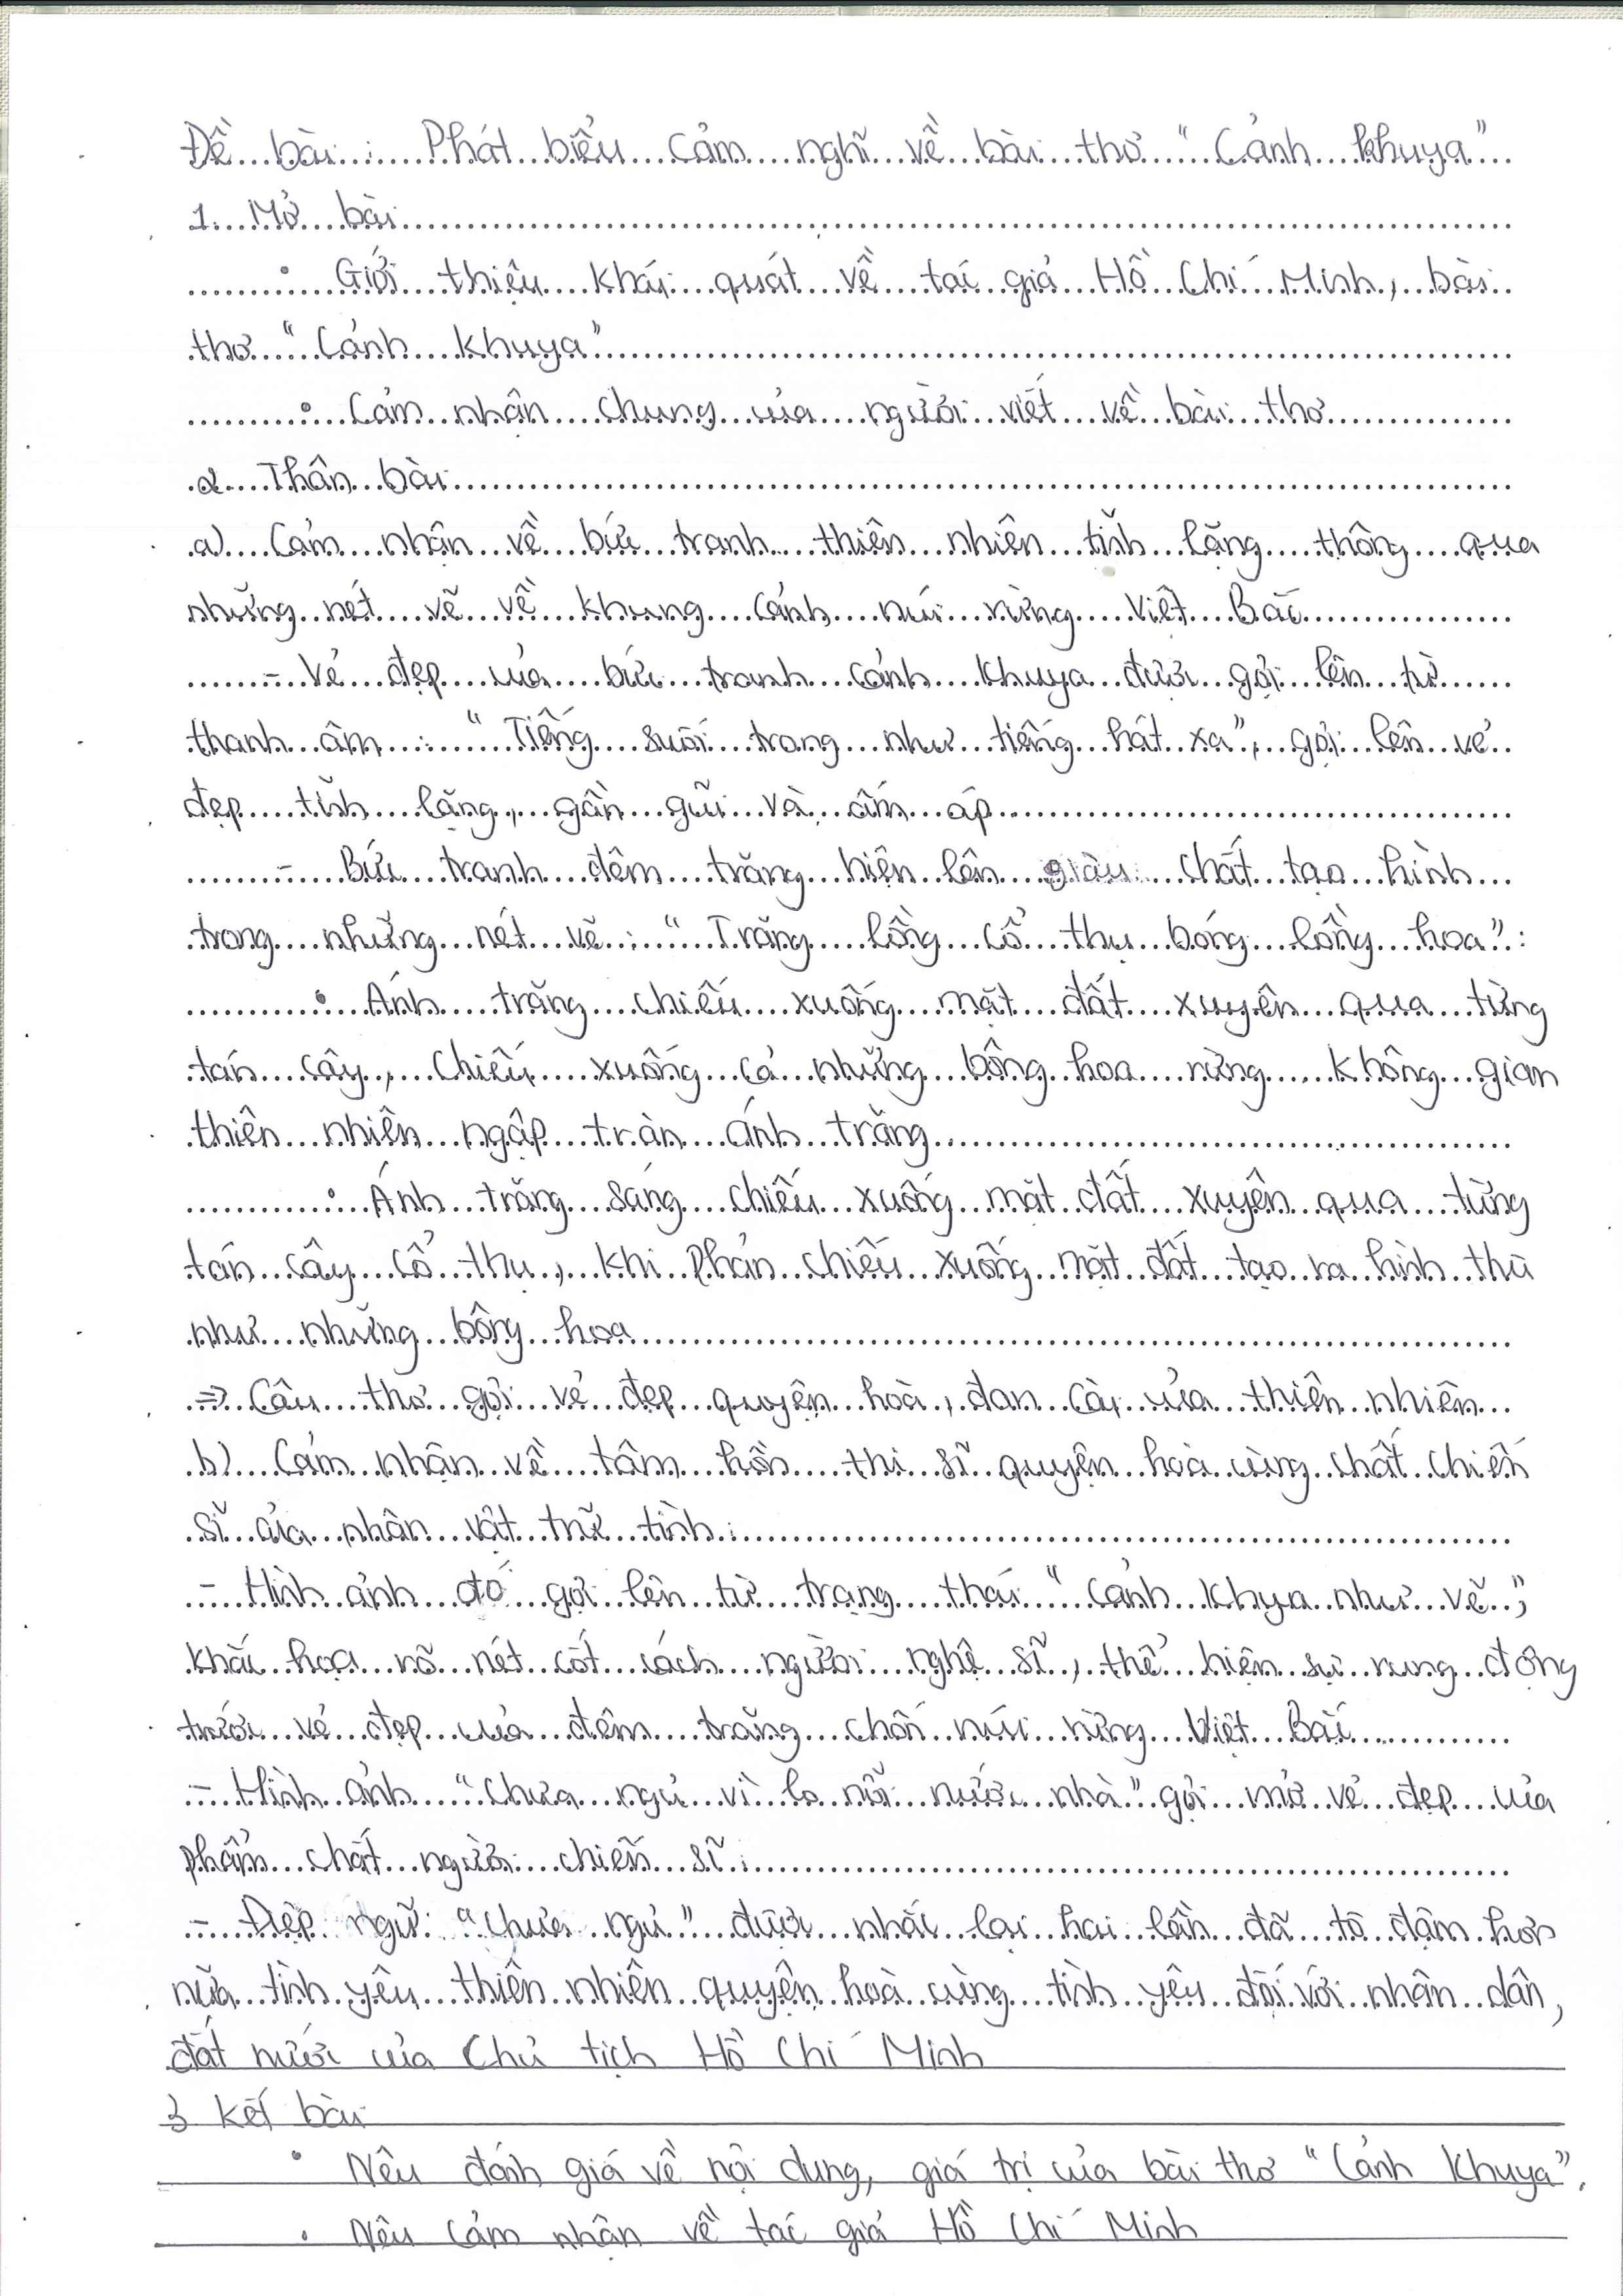 Đề bài : Phát biểu cảm nghĩ về bài thơ "Cảnh khuya"
1. Mở bài
• Giới thiệu khái quát về tác giả Hồ Chí Minh, bài
thơ "Cảnh khuya"
• Cảm nhận chung của người viết về bài thơ
2. Thân bài
a) Cảm nhận về bức tranh thiên nhiên tĩnh lặng thông qua
những nét vẽ về khung cảnh núi rừng Việt Bắc
- Vẻ đẹp của bức tranh cảnh khuya được gợi lên từ
thanh âm : "Tiếng suối trong như tiếng hát xa", gợi lên vẻ
đẹp tĩnh lặng, gần gũi và ấm áp
- Bức tranh đêm trăng hiện lên giàu chất tạo hình
trong những nét vẽ : "Trăng lồng cổ thụ bóng lồng hoa":
• Ánh trăng chiếu xuống mặt đất xuyên qua từng
tán cây, chiếu xuống cả những bông hoa rừng, không gian
thiên nhiên ngập tràn ánh trăng.
• Ánh trăng sáng chiếu xuống mặt đất xuyên qua từng
tán cây cổ thụ, khi phản chiếu xuống mặt đất tạo ra hình thù
như những bông hoa
=> Câu thơ gợi vẻ đẹp quyện hoà, đan cài của thiên nhiên
b) Cảm nhận về tâm hồn thi sĩ quyện hoà cùng chất chiến
sĩ của nhân vật trữ tình :
- Hình ảnh đó gợi lên từ trạng thái "Cảnh khya như vẽ",
khắc hoạ rõ nét cốt cách người nghệ sĩ, thể hiện sự rung động
trước vẻ đẹp của đêm trăng chốn núi rừng Việt Bắc
- Hình ảnh "Chưa ngủ vì lo nỗi nước nhà" gợi mở vẻ đẹp của
phẩm chất người chiến sĩ :
- Điệp ngữ: "Chưa ngủ" được nhắc lại hai lần đã tô đậm hơn
nữa tình yêu thiên nhiên quyện hoà cùng tình yêu đối với nhân dân,
đất nước của Chủ tịch Hồ Chí Minh
3 Kết bài
• Nêu đánh giá về nội dung, giá trị của bài thơ "Cảnh Khuya".
• Nêu cảm nhận về tác giả Hồ Chí Minh